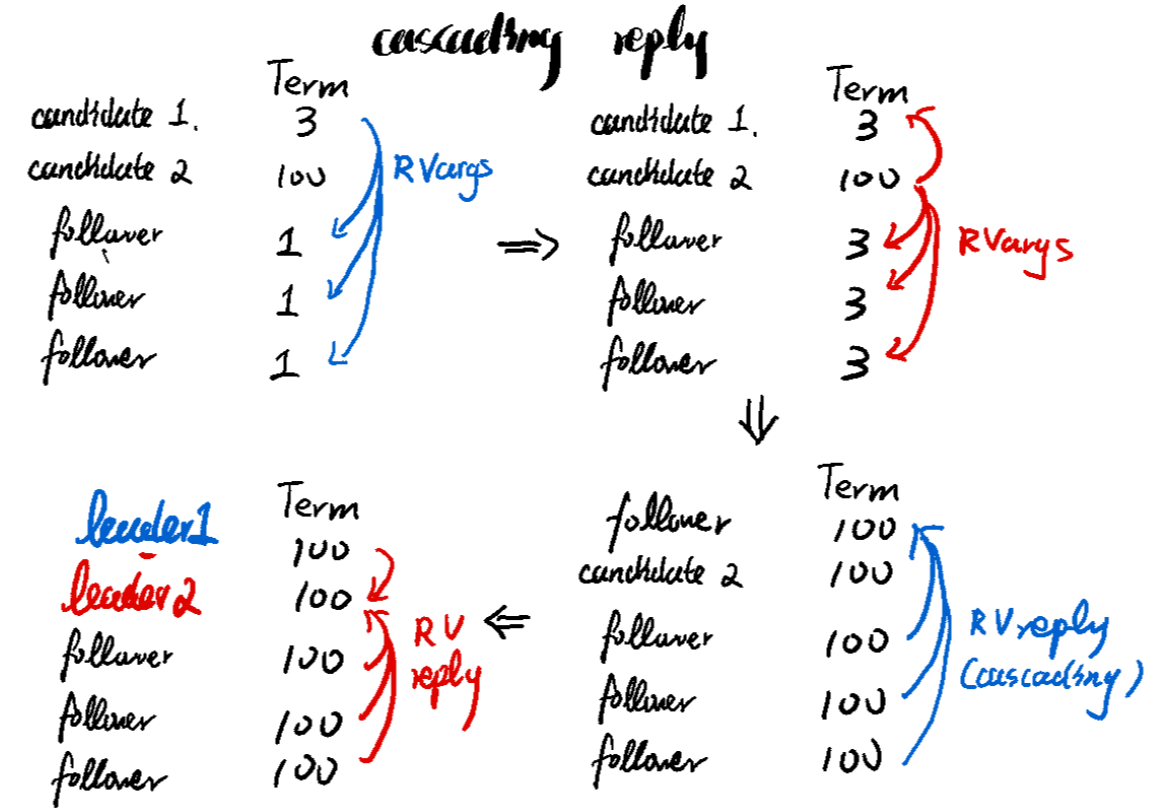 cascading reply
Term
candidate 1. 3
candidate 2 100
follower 1
follower 1
follower 1
RVargs
Term
candidate 1. 3
candidate 2 100
follower 3
follower 3
follower 3
RVargs
Term
leader1 100
leader2 100
follower 100
follower 100
follower 100
RV
reply
Term
follower 100
candidate 2 100
follower 100
follower 100
follower 100
RVreply
(cascading)